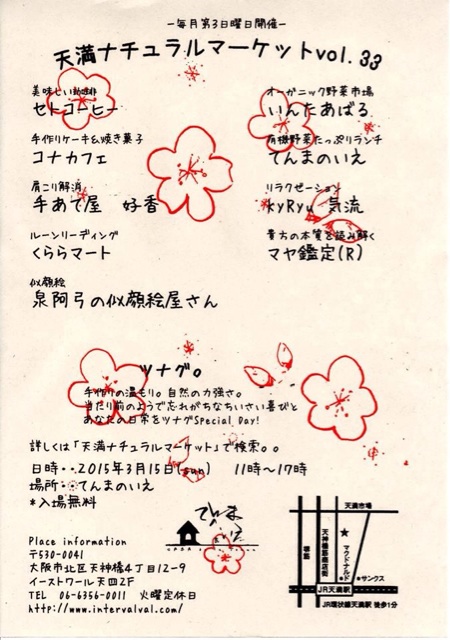 −毎月第3日曜日開催−
天満ナチュラルマーケットvol. 33
美味しい珈琲
セトコーヒー
オーガニック野菜市場
いんたあばる
手作りケーキ&焼き菓子
コナカフェ
有機野菜たっぷりランチ
てんまのいえ
肩こり解消
手あて屋 好香
リラクゼーション
kyRyu 気流
ルーンリーディング
くららマート
貴方の本質を読み解く
マヤ鑑定(R)
似顔絵
泉阿弓の似顔絵屋さん
ツナグ。
手作りの温もり。自然の力強さ。
当たり前のようで忘れがちなちいさい喜びと
あなたの日常をツナグSpecial Day!
詳しくは「天満ナチュラルマーケット」で検索。。
日時・・2015年3月15日(sun) 11時〜17時
場所・・てんまのいえ
*入場無料
てんま
のいえ
Place information
〒530-0041
大阪市北区天神橋4丁目12-9
イーストワール天四2F
TEL 06-6356-0011 火曜定休日
http://www.intervalval.com/
天満市場
天神橋筋商店街
マクドナルド
サンクス
JR天満駅
JR環状線天満駅 徒歩1分